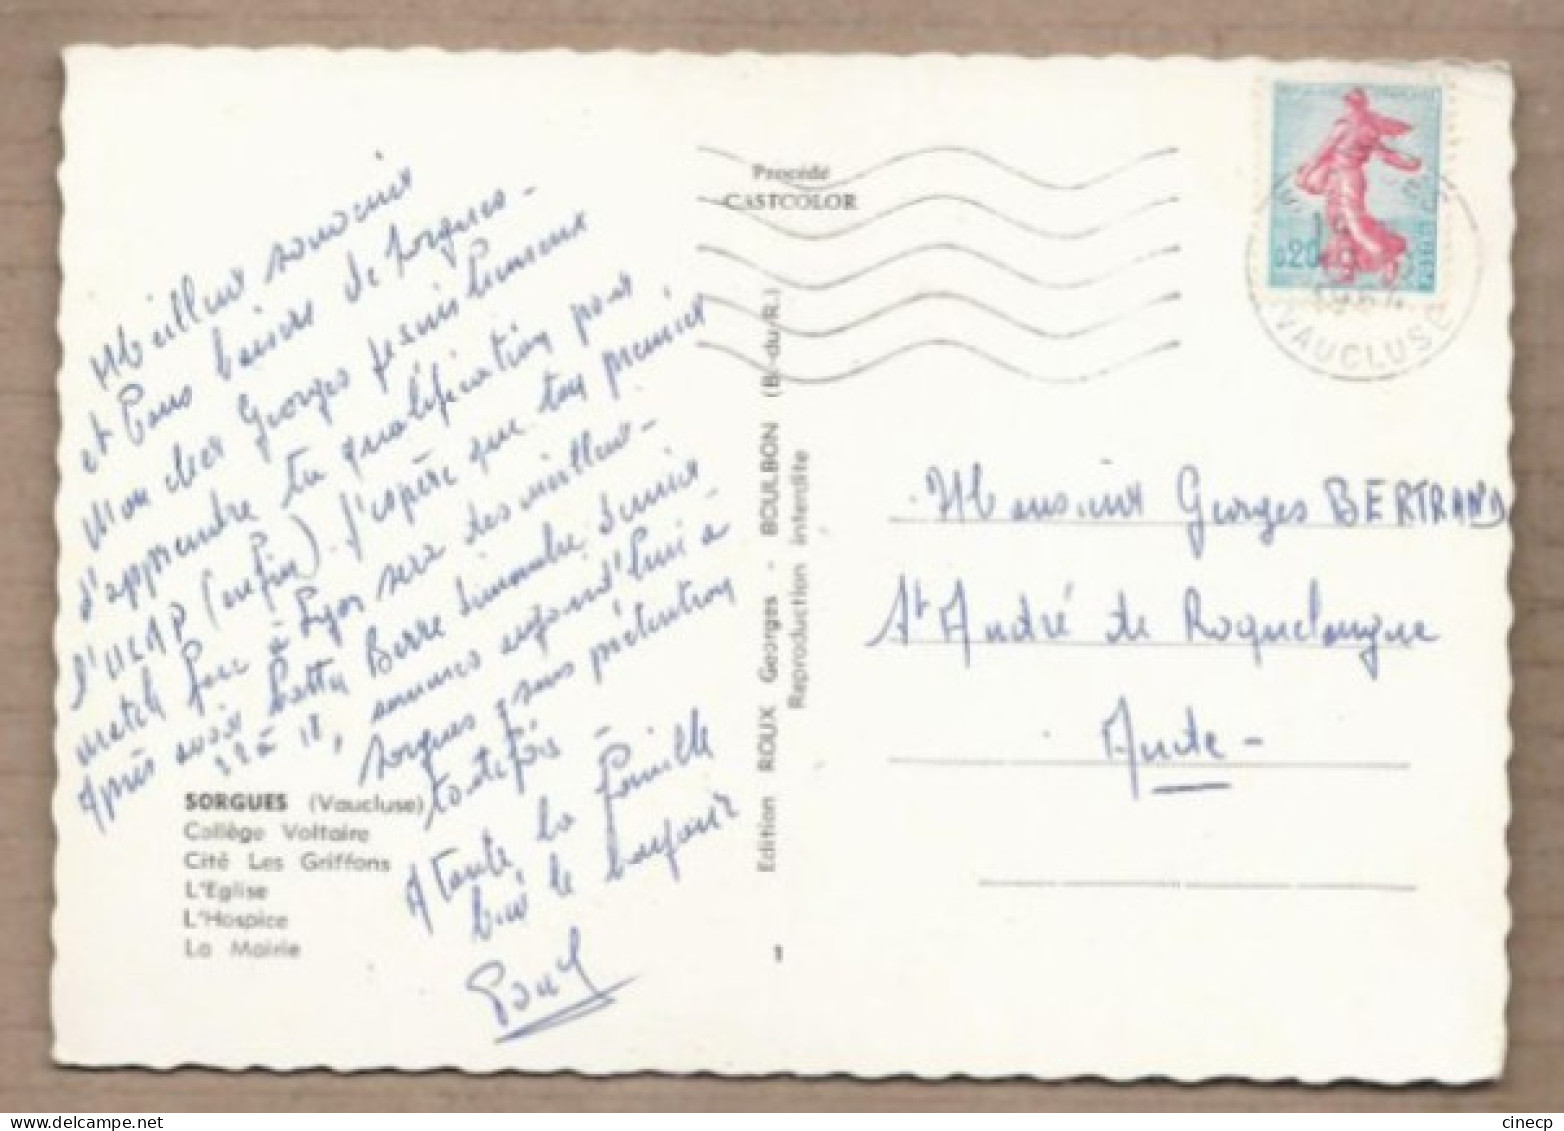 Meilleurs souvenirs
et bons baisers de Sorgues -
Mon cher Georges je suis heureux
d'apprendre ta qualification pour
l' (enfin). J'espère que ton premier
match face à Lyon sera des meilleurs -
Après avoir battu Berre dimanche dernier
22 à 18, sommes aujourd'hui à
Sorgues, sans prétention
toutefois -
A toute la famille
bien le bonjour
Paul
SORGUES (Vaucluse)
Collège Voltaire
Cité Les Griffons
L'Eglise
L'Hospice
La Mairie
Procédé
CASTCOLOR
Edition ROUX Georges - BOULBON (B.-du-R.)
Reproduction interdite
1
0.20
VAUCLUSE
Monsieur Georges BERTRAND
St André de Roquelongue
Aude -
cinecp